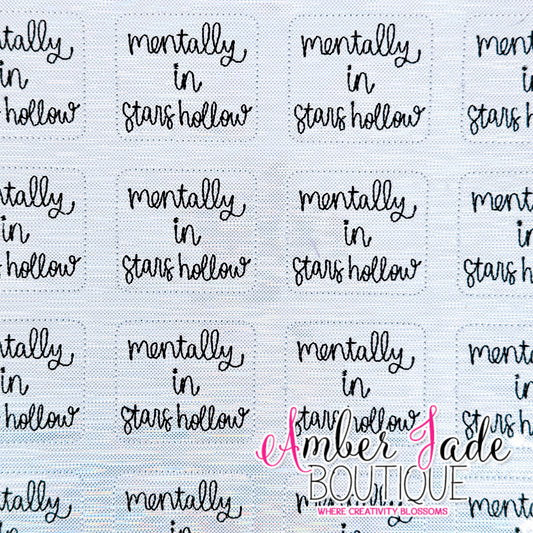 ntally, mentally, mentally, ment
in in in i
stars hollow stars hollow stars hollow stars h
ntally, mentally, mentally, ment
in in in in
stars hollow stars hollow stars hollow stars h
ntally, mentally, mentally, ment
in in in in
stars hollow stars hollow stars hollow stars h
Amber Jade
BOUTIQUE
WHERE CREATIVITY BLOSSOMS
ntally mentally mentally, ment
in in in i